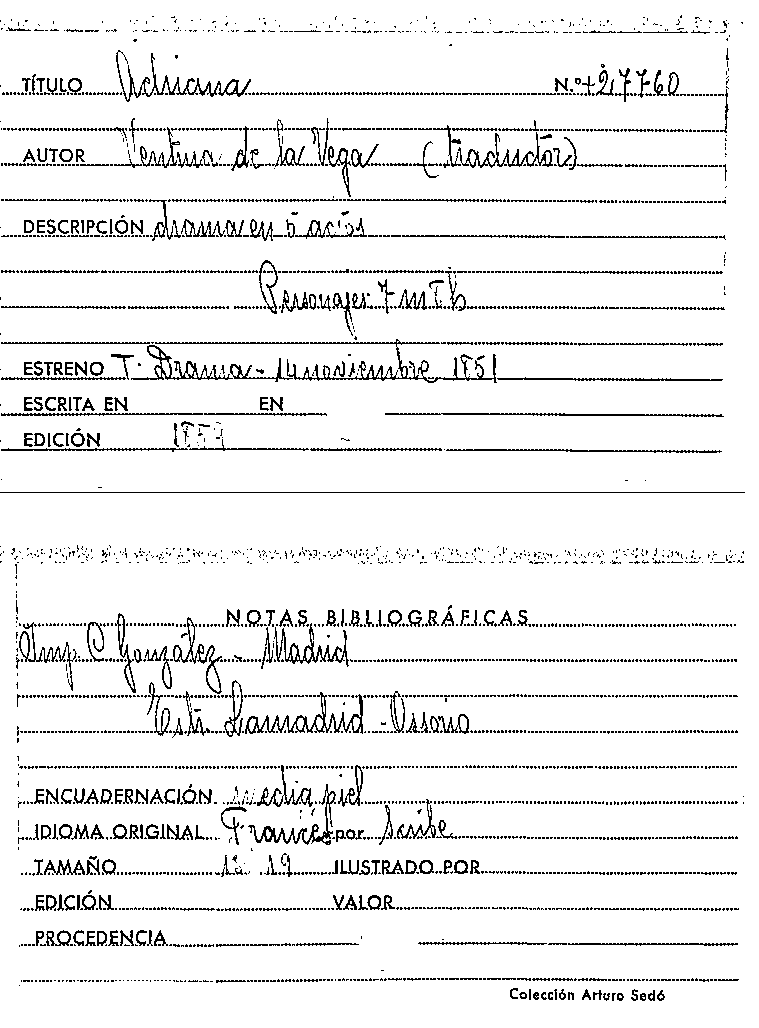 TÍTULO Adriana N.º
AUTOR Ventura de la Vega (traductor)
DESCRIPCIÓN drama en 5 actos
Personajes 7 m
ESTRENO T. Drama - 14 noviembre 1851
ESCRITA EN EN
EDICIÓN
NOTAS BIBLIOGRÁFICAS
Imp. C. González - Madrid
Estr. Lamadrid - Ossorio
ENCUADERNACIÓN media piel
IDIOMA ORIGINAL Francés por Scribe
TAMAÑO 13 19 ILUSTRADO POR
EDICIÓN VALOR
PROCEDENCIA
Colección Arturo Sedó